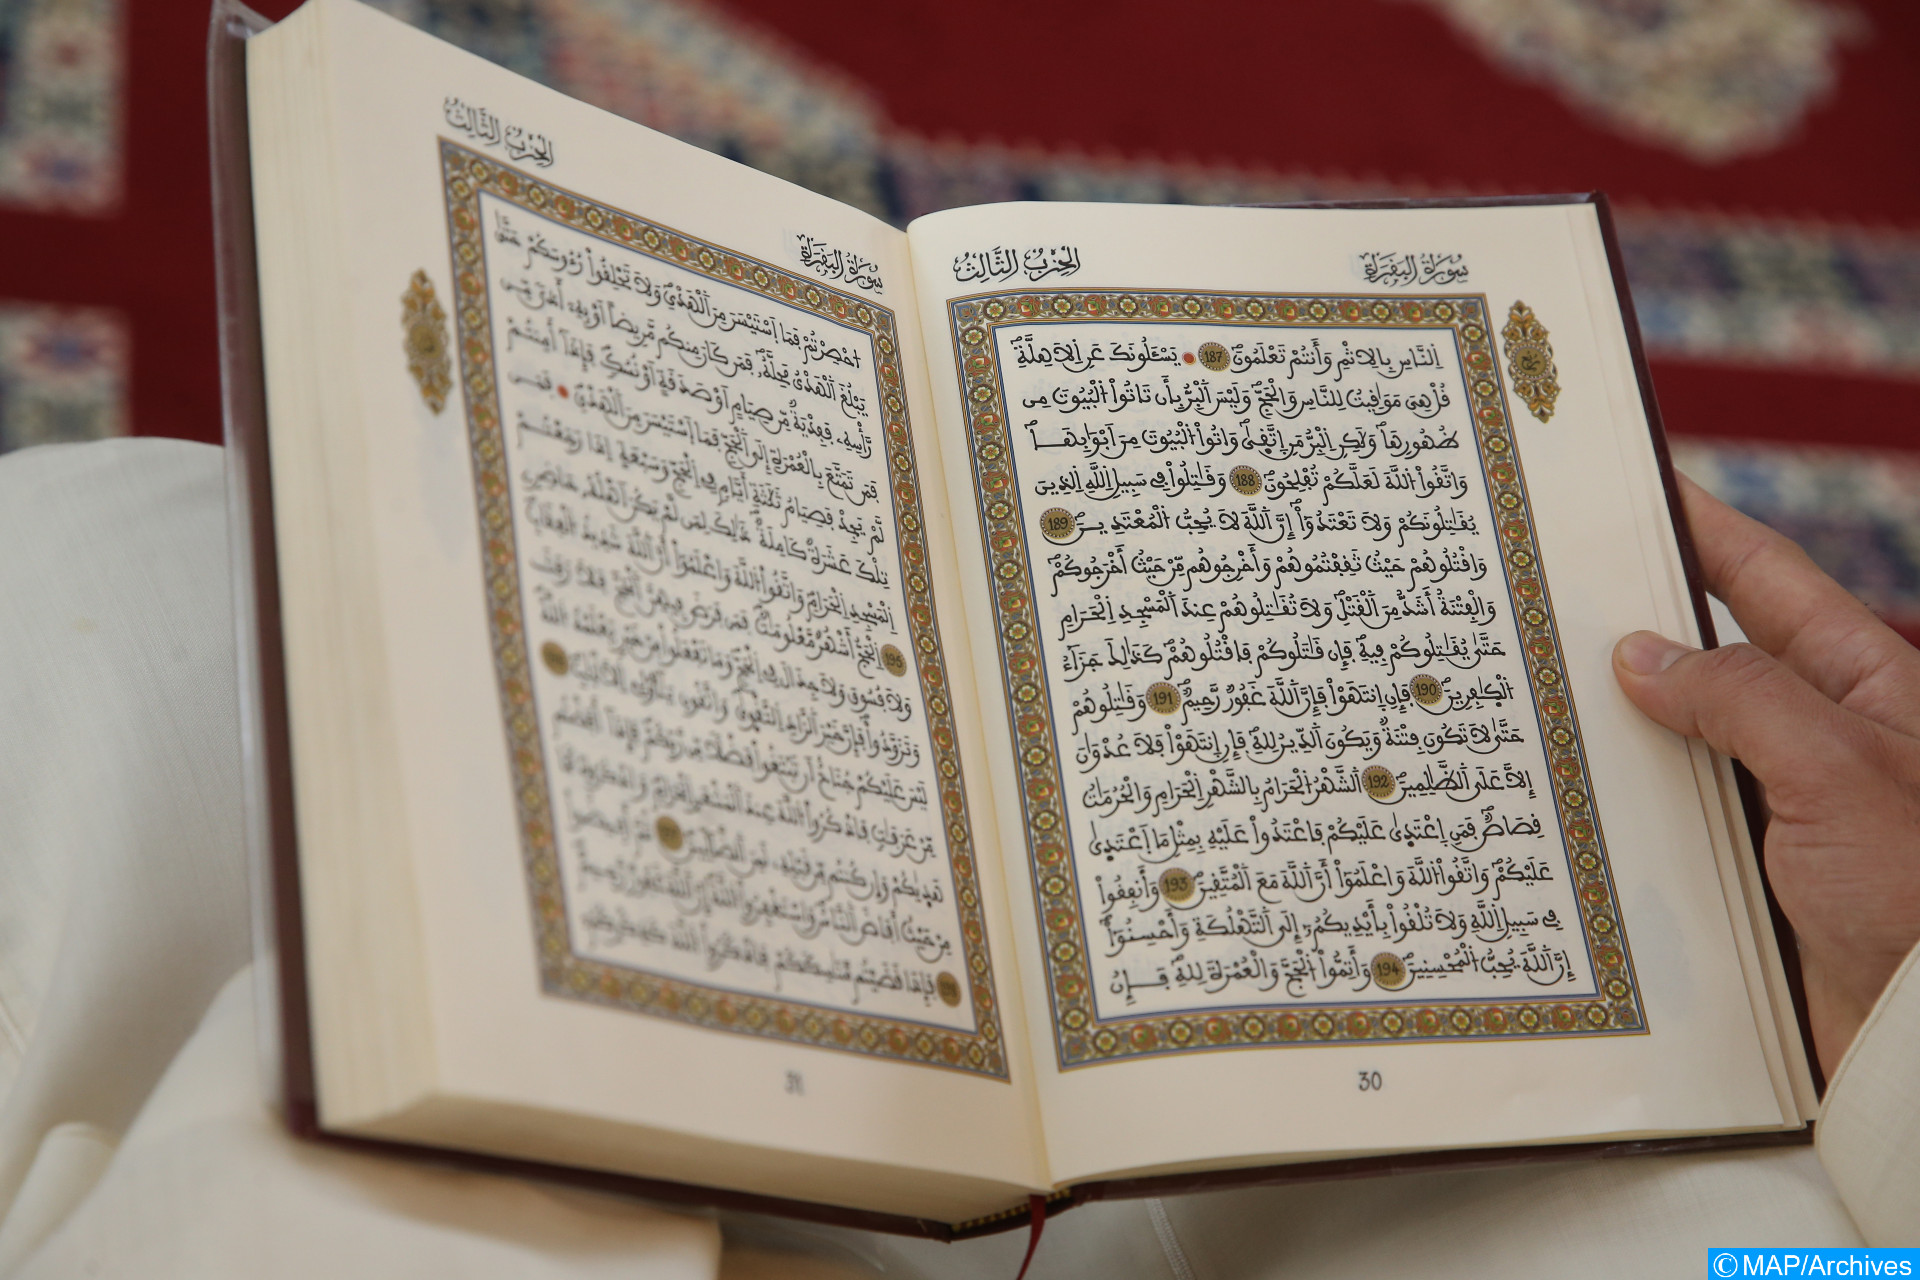 سُورَةُ الْبَقَرَةِ
الْحِزْبُ الثَّالِثُ
اَ۬لنَّاسِ بِالِاثْمِ وَأَنتُمْ تَعْلَمُونَۖ 187 يَسْـَٔلُونَكَ عَنِ اِ۬لَاهِلَّةِۖ
قُلْ هِيَ مَوَٰقِيتُ لِلنَّاسِ وَالْحَجِّۖ وَلَيْسَ اَ۬لْبِرُّ بِأَن تَاتُواْ الْبُيُوتَ مِن
ظُهُورِهَاۖ وَلَٰكِنِ اِ۬لْبِرُّ مَنِ اِ۪تَّقۭيٰۖ وَاتُواْ الْبُيُوتَ مِنَ اَبْوَٰبِهَاۖ
وَاتَّقُواْ اللَّهَ لَعَلَّكُمْ تُفْلِحُونَۖ 188 وَقَٰتِلُواْ فِے سَبِيلِ اِ۬للَّهِ اِ۬لذِينَ
يُقَٰتِلُونَكُمْ وَلَا تَعْتَدُوٓاْۖ إِنَّ اَ۬للَّهَ لَا يُحِبُّ اُ۬لْمُعْتَدِينَۖ 189
وَاقْتُلُوهُمْ حَيْثُ ثَقِفْتُمُوهُمْ وَأَخْرِجُوهُم مِّنْ حَيْثُ أَخْرَجُوكُمْۖ
وَالْفِتْنَةُ أَشَدُّ مِنَ اَ۬لْقَتْلِۖ وَلَا تُقَٰتِلُوهُمْ عِندَ اَ۬لْمَسْجِدِ اِ۬لْحَرَامِ
حَتَّىٰ يُقَٰتِلُوكُمْ فِيهِۖ فَإِن قَٰتَلُوكُمْ فَاقْتُلُوهُمْۖ كَذَٰلِكَ جَزَآءُ
اُ۬لْكٰ۪فِرِينَۖ 190 فَإِنِ اِ۪نتَهَوْاْ فَإِنَّ اَ۬للَّهَ غَفُورٌ رَّحِيمٌۖ 191 وَقَٰتِلُوهُمْ
حَتَّىٰ لَا تَكُونَ فِتْنَةٌ وَيَكُونَ اَ۬لدِّينُ لِلهِۖ فَإِنِ اِ۪نتَهَوْاْ فَلَا عُدْوَٰنَ
إِلَّا عَلَى اَ۬لظَّٰلِمِينَۖ 192 اَ۬لشَّهْرُ اُ۬لْحَرَامُ بِالشَّهْرِ اِ۬لْحَرَامِ وَالْحُرُمَٰتُ
قِصَاصٞۖ فَمَنِ اِ۪عْتَد۪يٰ عَلَيْكُمْ فَاعْتَدُواْ عَلَيْهِ بِمِثْلِ مَا اَ۪عْتَد۪يٰ
عَلَيْكُمْۖ وَاتَّقُواْ اُ۬للَّهَ وَاعْلَمُوٓاْ أَنَّ اَ۬للَّهَ مَعَ اَ۬لْمُتَّقِينَۖ 193 وَأَنفِقُواْ
فِے سَبِيلِ اِ۬للَّهِ وَلَا تُلْقُواْ بِأَيْدِيكُمُۥٓ إِلَى اَ۬لتَّهْلُكَةِ وَأَحْسِنُوٓاْۖ
إِنَّ اَ۬للَّهَ يُحِبُّ اُ۬لْمُحْسِنِينَۖ 194 وَأَتِمُّواْ اُ۬لْحَجَّ وَالْعُمْرَةَ لِلهِۖ فَإِنُ
30
سُورَةُ الْبَقَرَةِ
الْحِزْبُ الثَّالِثُ
اُ۟حْصِرْتُمْ فَمَا اَ۪سْتَيْسَرَ مِنَ اَ۬لْهَدْيِۖ وَلَا تَحْلِقُواْ رُءُوسَكُمْ حَتَّىٰ
يَبْلُغَ اَ۬لْهَدْيُ مَحِلَّهُۥۖ فَمَن كَانَ مِنكُم مَّرِيضاً اَوْ بِهِۦٓ أَذىٗ مِّن
رَّأْسِهِۦ فَفِدْيَةٞ مِّن صِيَامٍ اَوْ صَدَقَةٍ اَوْ نُسُكٖۖ فَإِذَآ أَمِنتُمْ
فَمَن تَمَتَّعَ بِالْعُمْرَةِ إِلَى اَ۬لْحَجِّ فَمَا اَ۪سْتَيْسَرَ مِنَ اَ۬لْهَدْيِۖ فَمَن
لَّمْ يَجِدْ فَصِيَامُ ثَلَٰثَةِ أَيَّامٖ فِے اِ۬لْحَجِّ وَسَبْعَةٍ اِذَا رَجَعْتُمْۖ
تِلْكَ عَشَرَةٞ كَامِلَةٞۖ ذَٰلِكَ لِمَن لَّمْ يَكُنَ اَهْلُهُۥ حَاضِرِے
اِ۬لْمَسْجِدِ اِ۬لْحَرَامِۖ وَاتَّقُواْ اُ۬للَّهَ وَاعْلَمُوٓاْ أَنَّ اَ۬للَّهَ شَدِيدُ اُ۬لْعِقَابِۖ
195 اِ۬لْحَجُّ أَشْهُرٞ مَّعْلُومَٰتٞۖ فَمَن فَرَضَ فِيهِنَّ اَ۬لْحَجَّ فَلَا رَفَثَ
وَلَا فُسُوقَ وَلَا جِدَالَ فِے اِ۬لْحَجِّۖ وَمَا تَفْعَلُواْ مِنْ خَيْرٖ يَعْلَمْهُ اُ۬للَّهُۖ
وَتَزَوَّدُواْ فَإِنَّ خَيْرَ اَ۬لزَّادِ اِ۬لتَّقْو۪يٰۖ وَاتَّقُونِ يَٰٓأُوْلِے اِ۬لَالْبَٰبِۖ
لَيْسَ عَلَيْكُمْ جُنَاحٌ اَن تَبْتَغُواْ فَضْلاٗ مِّن رَّبِّكُمْۖ فَإِذَآ أَفَضْتُم
مِّنْ عَرَفَٰتٖ فَاذْكُرُواْ اُ۬للَّهَ عِندَ اَ۬لْمَشْعَرِ اِ۬لْحَرَامِۖ وَاذْكُرُوهُ كَمَا
هَد۪يٰكُمْ وَإِن كُنتُم مِّن قَبْلِهِۦ لَمِنَ اَ۬لضَّآلِّينَۖ ثُمَّ أَفِيضُواْ
مِنْ حَيْثُ أَفَاضَ اَ۬لنَّاسُ وَاسْتَغْفِرُواْ اُ۬للَّهَۖ إِنَّ اَ۬للَّهَ غَفُورٞ رَّحِيمٞۖ
فَإِذَا قَضَيْتُم مَّنَٰسِكَكُمْ فَاذْكُرُواْ اُ۬للَّهَ كَذِكْرِكُمُۥٓ
31
© MAP/Archives